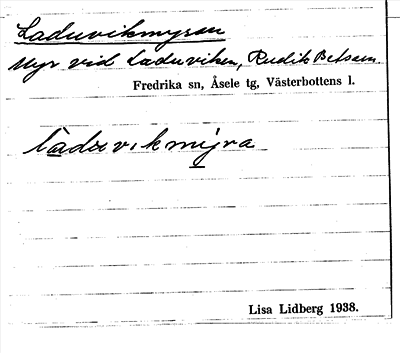 Laduvikmyran
Myr vid Laduviken, Rudils Betsem.
Fredrika sn, Åsele tg, Västerbottens l.
ladu v ɩ k mȳra
Lisa Lidberg 1938.